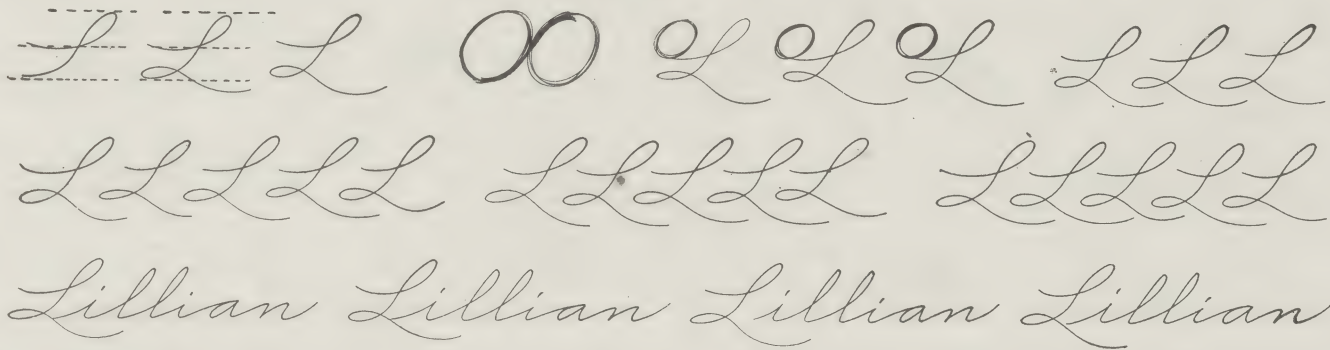 L L L L L L L L L
L L L L L L L L L L L L L L L
Lillian Lillian Lillian Lillian